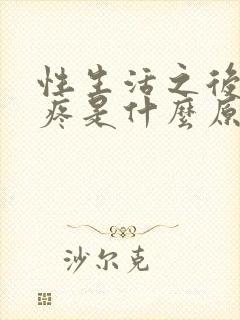 性生活之後
疼是什麼原
沙尔克